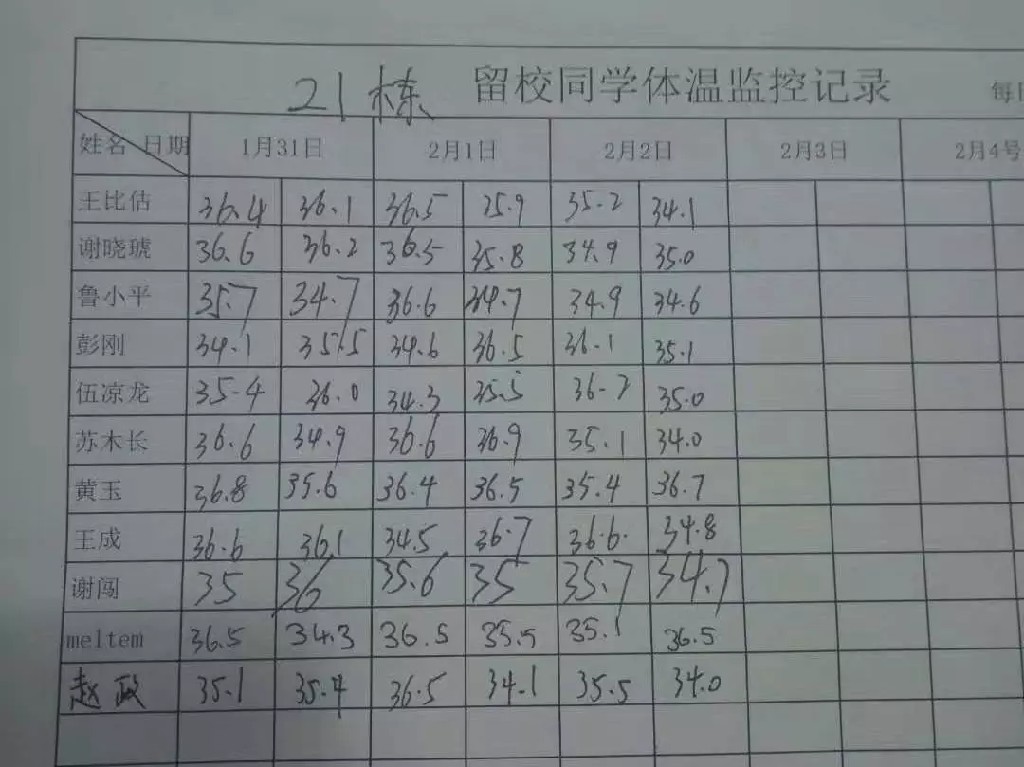 21栋 留校同学体温监控记录 每日
姓名 日期 1月31日 2月1日 2月2日 2月3日 2月4号
王比估 36.4 36.1 36.5 25.9 35.2 34.1
谢晓琥 36.6 36.2 36.5 35.8 34.9 35.0
鲁小平 35.7 34.7 36.6 34.7 34.9 34.6
彭刚 34.1 35.5 34.6 36.5 36.1 35.1
伍凉龙 35.4 36.0 34.3 35.5 36.7 35.0
苏木长 36.6 34.9 36.6 36.9 35.1 34.0
黄玉 36.8 35.6 36.4 36.5 35.4 36.7
王成 36.6 36.1 34.5 36.7 36.6 34.8
谢闯 35 36 35.6 35 35.7 34.7
meltem 36.5 34.3 36.5 35.5 35.1 36.5
赵政 35.1 35.4 36.5 34.1 35.5 34.0